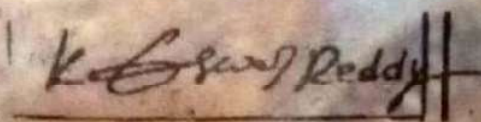 K Eswar Reddy